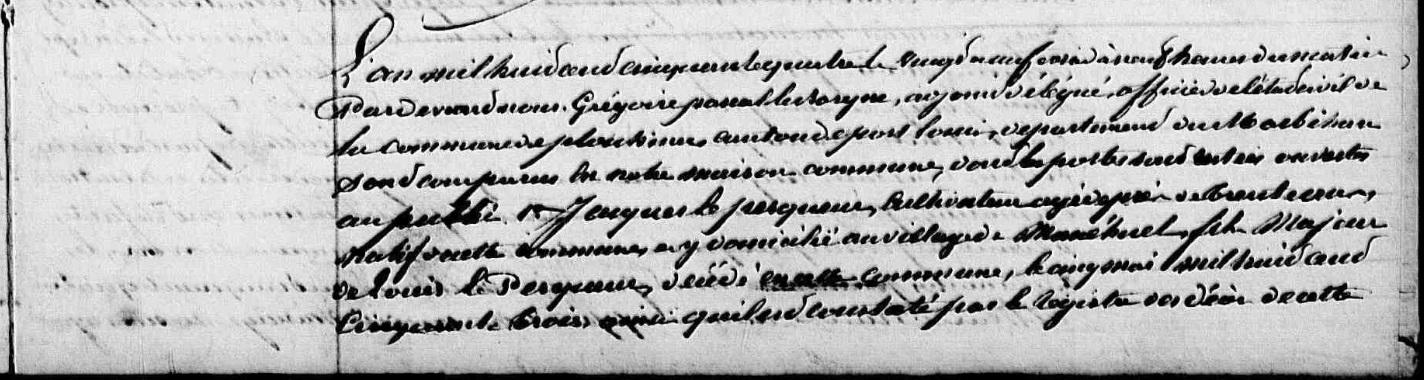 L'an mil huid cend cinquante quatre le vingt neuf à neuf heures du matin
Pardevand nous Grégoire, adjoind délégué, officier de l'étad civil de
la commune de ploeu canton de port louis, département du Morbihan
sond comparus en notre maison commune, dond les portes sond ouvertes
au public 1° Jacques le pesqueur, Cultivateur agé de près de trente ans,
natif de cette commune, et y domicilié au village de Manéhuel, fils Majeur
de Louis le Pesqueur, décédé en cette commune, le cinq mai mil huid cend
Cinquante trois, ainsi qu'il est constaté par le régistre des décès de cette